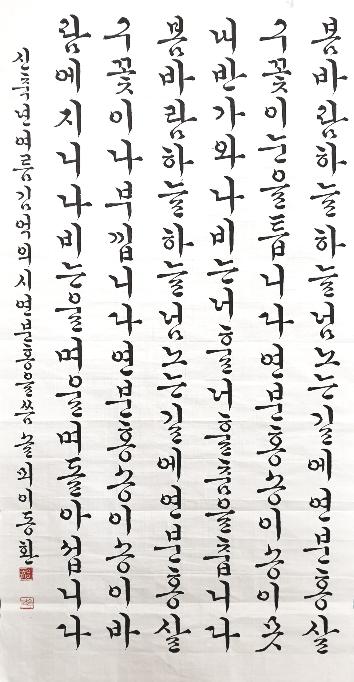 봄바람하늘하늘넘노는길에연분홍살
구꽃이눈을틉니다연분홍송이송이못
내반가와나비는너훌너훌춤을춥니다
봄바람하늘하늘넘노는길에연분홍살
구꽃이나부낍니다연분홍송이송이바
람에지니나비는울며울며돌아섭니다
신축년여름김억의시연분홍을씀 솔뫼이동환